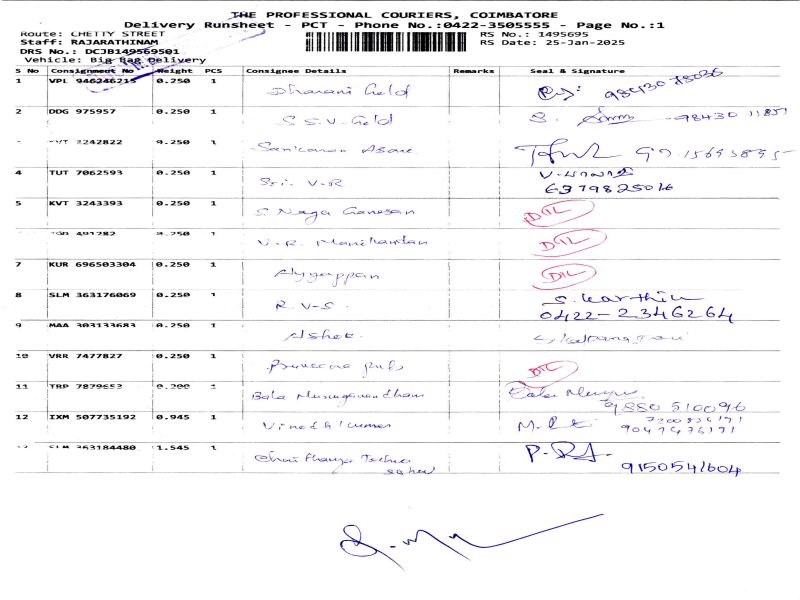 THE PROFESSIONAL COURIERS, COIMBATORE
Delivery Runsheet - PCT - Phone No.:0422-3505555 - Page No.:1
Route: CHETTY STREET RS No.: 1495695
Staff: RAJARATHINAM RS Date: 25-Jan-2025
DRS No.: DCJB149569501
Vehicle: Big Bag Delivery
S No Consignment No Weight PCS Consignee Details Remarks Seal & Signature
1 VPL 946246215 0.250 1 Dharani Gold 98430 78036
2 DDG 975957 0.250 1 S.S.V. Gold S. 98430 11851
2242822 0.250 1
4 TUT 7062593 0.250 1 Sri. V.R 6379825016
5 KVT 3243393 0.250 1 S. Naga Ganesan D1L
491282 0.250 1 V.R. Manikandan D1L
7 KUR 696503304 0.250 1 Ayyappan D1L
8 SLM 363176069 0.250 1 R.V-S. S. Karthik
0422-2346264
9 MAA 303133683 0.250 1 Ashok
10 VRR 7477827 0.250 1 D1L
11 TRP 7879653 0.200 1 Bala Muruganandham Bala Muru
9880510096
12 IXM 507735192 0.945 1 Vinodh Kumar M.
9047476171
SLM 363184480 1.545 1 Techno P.
9150541604